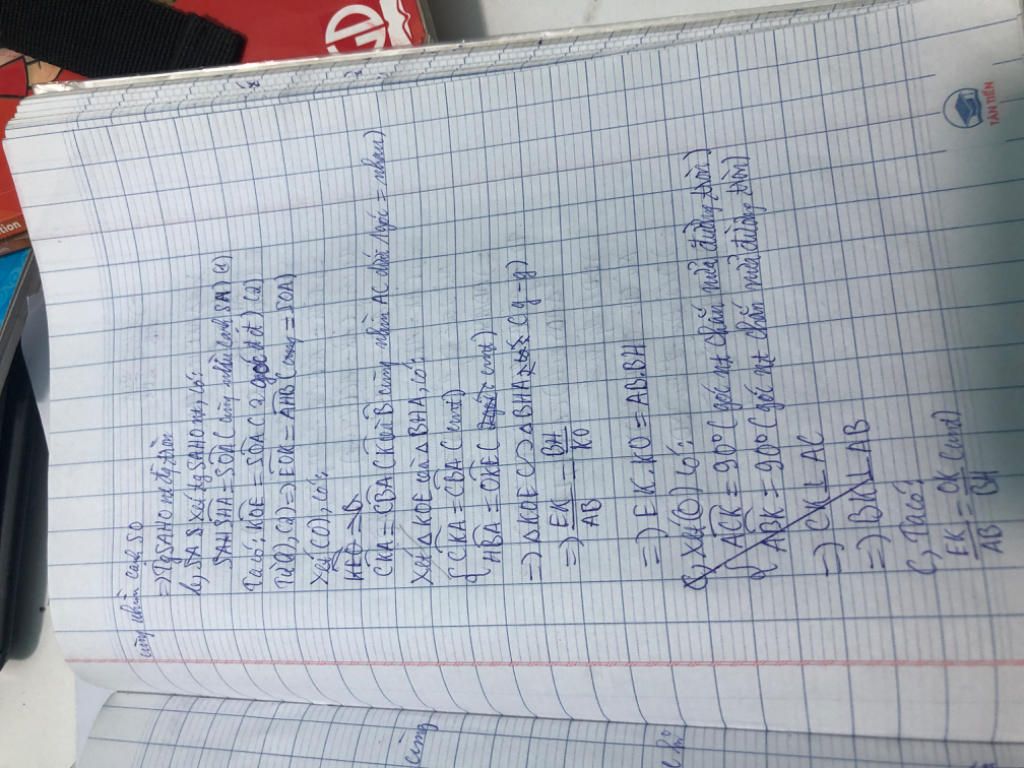 cùng nhìn cạnh SO
=> Tg SAHO nt đg tròn
b, Xét tg SAHO nt, có:
SHA = SOA (cùng nhìn cạnh SA) (1)
Ta có: KOE = SOA (2 góc đđ) (2)
Từ (1), (2) => EOK = AHB (cùng = SOA)
Xét (O), có:
CKA = CBA (K và B cùng nhìn AC dưới 1 góc = nhau)
Xét △KOE và △BHA, có:
{ CKA = CBA (cmt)
HBA = OKE ( cmt)
=> △KOE ∽ △BHA (g-g)
=> EK/AB = BH/KO
=> EK.KO = AB.BH
c, Xét (O) có:
{ ACK = 90° (góc nt chắn nửa đường tròn)
ABK = 90° (góc nt chắn nửa đường tròn)
=> CK ⊥ AC
=> BK ⊥ AB
c, Ta có:
EK/AB = OK/BH (cmt)
TÂN TIẾN
cùng